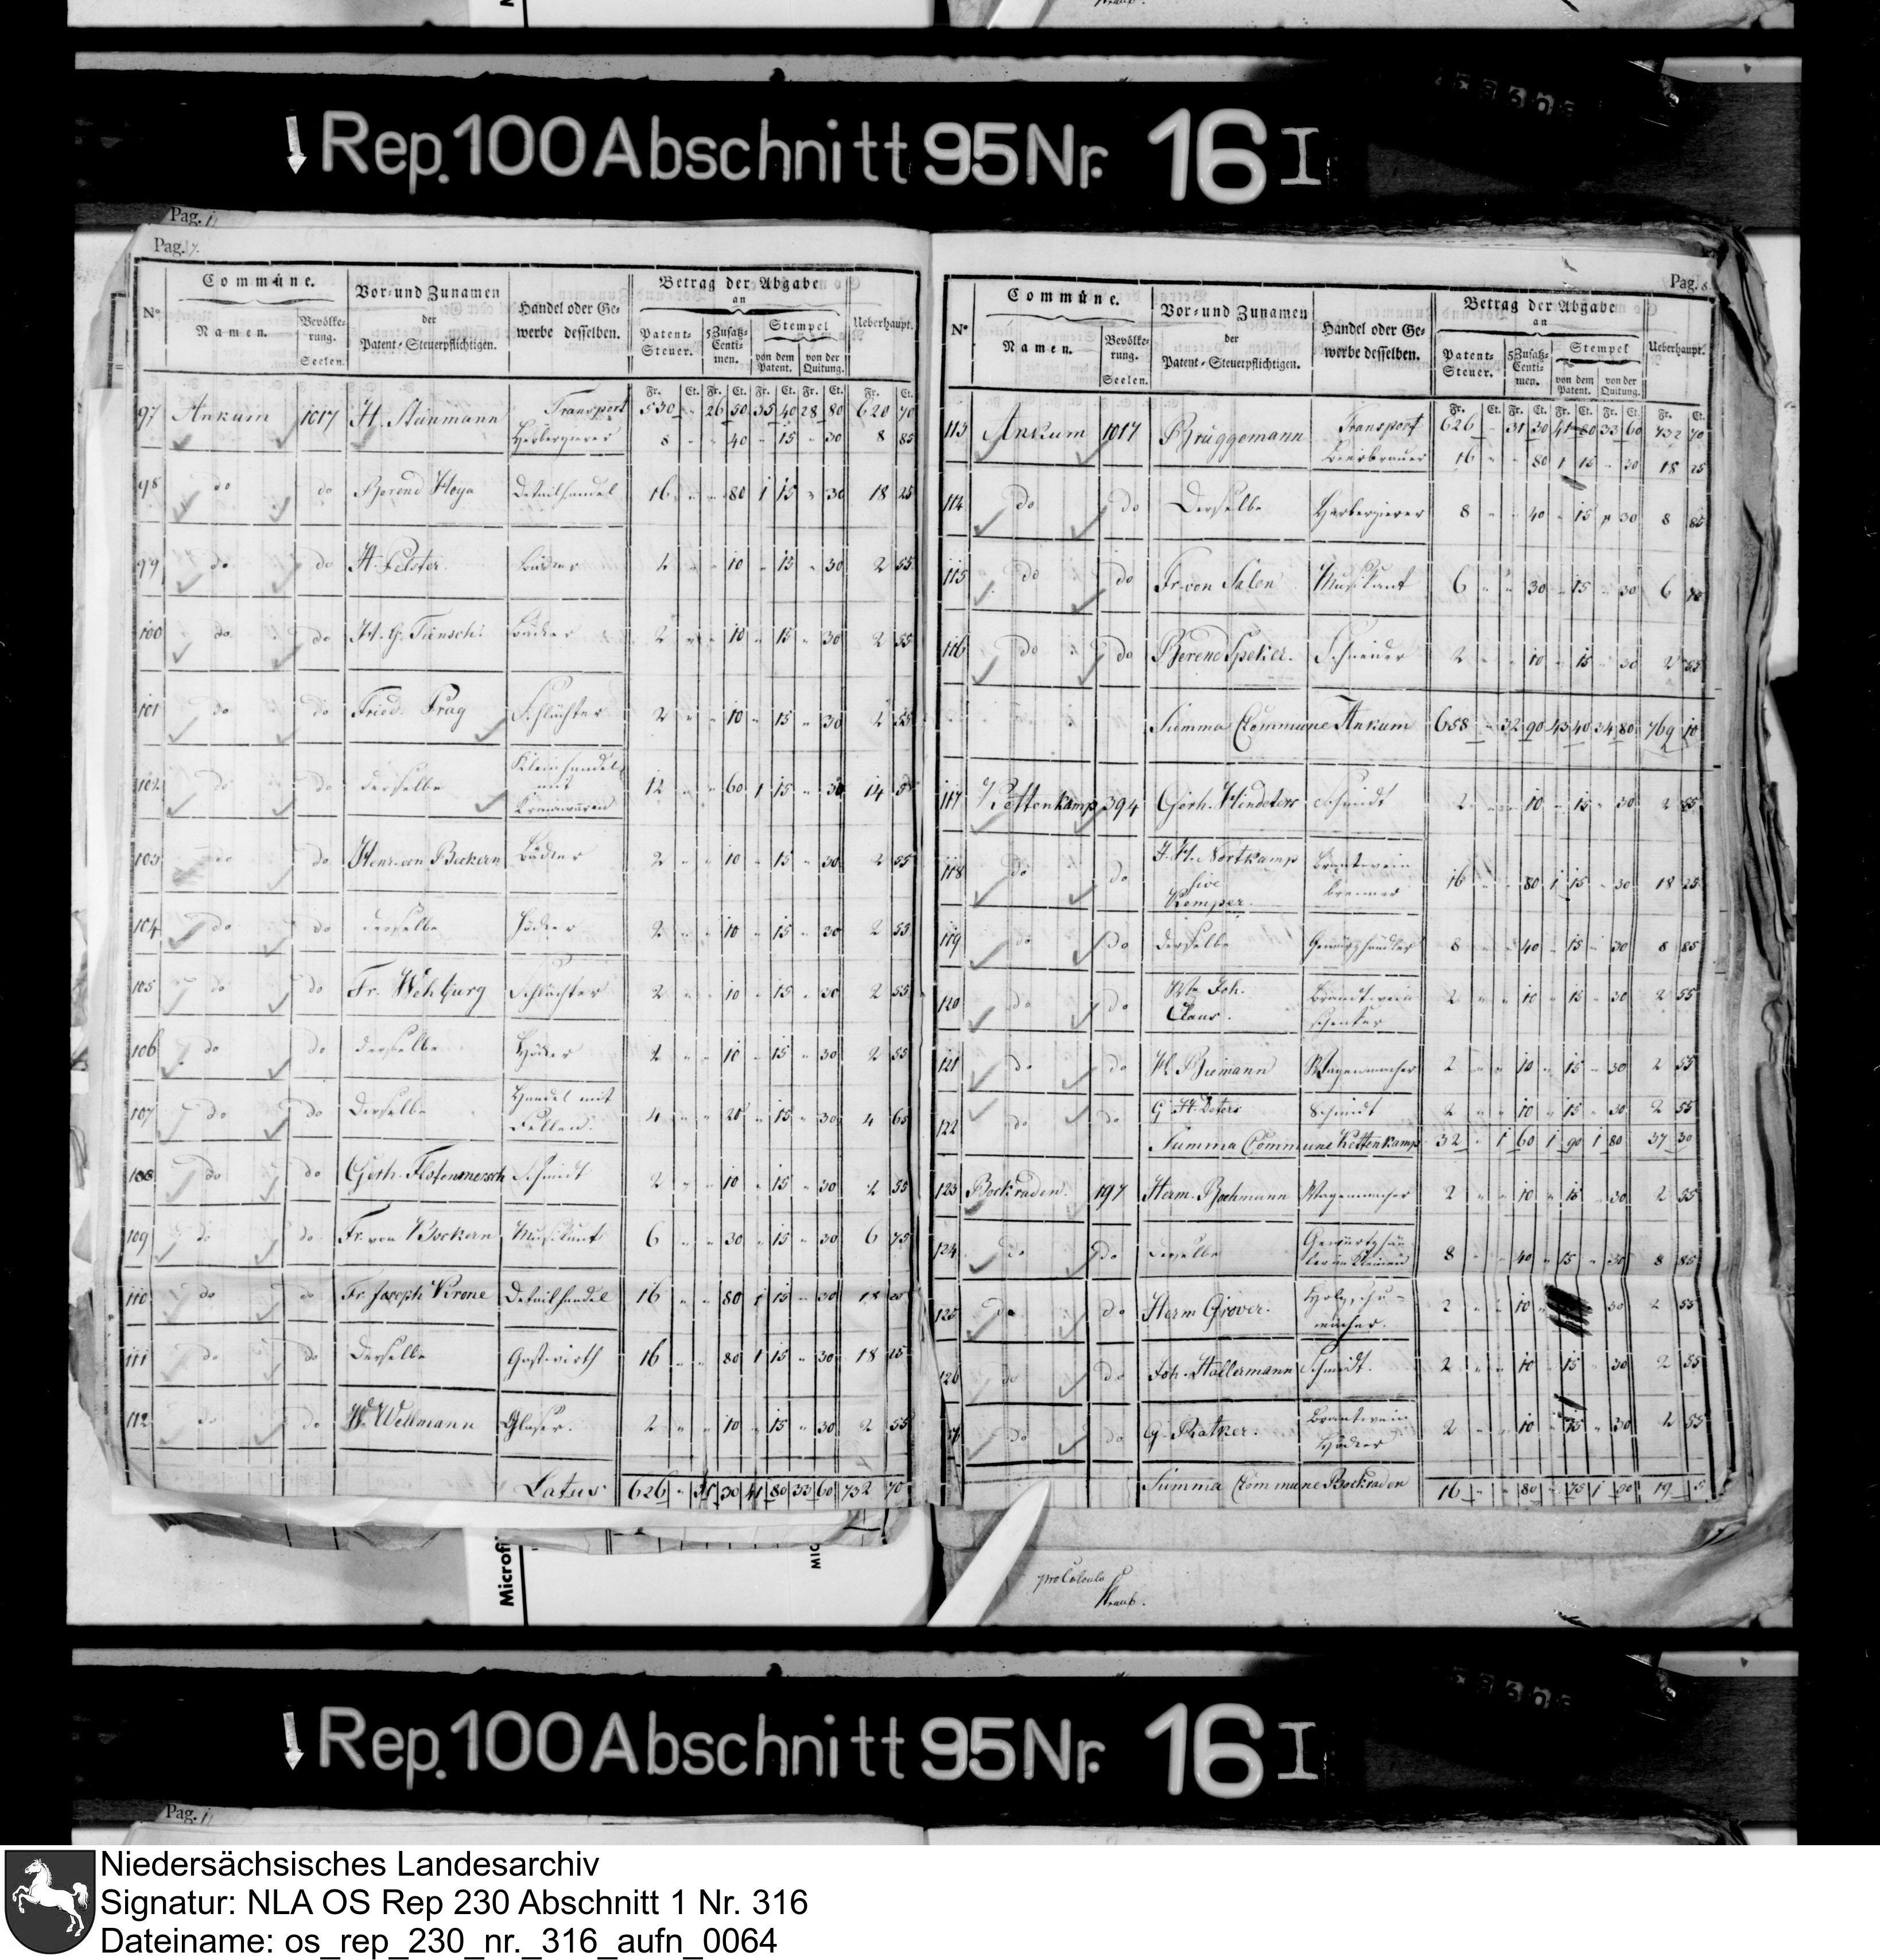 Rep. 100 Abschnitt 95 Nr. 16 I
Pag.
Pag. 7.
N° Commúne. Vor- und Zunamen der Patent-Steuerpflichtigen. Handel oder Gewerbe desselben. Betrag der Abgabe an Ueberhaupt.
Namen. Bevölkerung. Seelen. Patent-Steuer. 5 Zusatz-Centimen. Stempel von dem Patent. von der Quitung.
Fr. Ct. Fr. Ct. Fr. Ct. Fr. Ct. Fr. Ct.
Transport 530 " 26 50 35 40 28 80 620 70
97 Ankum 1017 H. Steinmann Herbergierer 8 " " 40 " 15 " 30 8 85
98 do do Berend Hoya Detailhandel 16 " " 80 1 15 " 30 18 25
99 do do H. Pelster 2 " " 10 " 15 " 30 2 55
100 do do 2 " " 10 " 15 " 30 2 55
101 do do Fried. Prag Schlächter 2 " " 10 " 15 " 30 2 55
102 do do derselbe Kleinhandel mit 12 " " 60 1 15 " 30 14 5
103 do do Henr. von Bockern 2 " " 10 " 15 " 30 2 55
104 do do derselbe Höcker 2 " " 10 " 15 " 30 2 55
105 do do Fr. Wehburg Schlächter 2 " " 10 " 15 " 30 2 55
106 do do derselbe Höcker 2 " " 10 " 15 " 30 2 55
107 do do Derselbe Handel mit Fellen. 4 " " 20 " 15 " 30 4 65
108 do do Gerh. Schmidt 2 " " 10 " 15 " 30 2 55
109 do do Fr. von Bockern Musikant 6 " " 30 " 15 " 30 6 75
110 do do Fr. Joseph Krone Detailhandel 16 " " 80 1 15 " 30 18 25
111 do do Derselbe Gastwirth 16 " " 80 1 15 " 30 18 25
112 do do W. Wellmann Glaser. 2 " " 10 " 15 " 30 2 55
Latus 626 " 31 30 41 80 33 60 732 70
Pag. 8.
N° Commúne. Vor- und Zunamen der Patent-Steuerpflichtigen. Handel oder Gewerbe desselben. Betrag der Abgabe an Ueberhaupt.
Namen. Bevölkerung. Seelen. Patent-Steuer. 5 Zusatz-Centimen. Stempel von dem Patent. von der Quitung.
Fr. Ct. Fr. Ct. Fr. Ct. Fr. Ct. Fr. Ct.
Transport 626 " 31 30 41 80 33 60 732 70
113 Ankum 1017 Brüggemann Bierbrauer 16 " " 80 1 15 " 30 18 25
114 do do Derselbe Herbergierer 8 " " 40 " 15 " 30 8 85
115 do do Fr. von Salen Musikant 6 " " 30 " 15 " 30 6 75
116 do do Berend Speker. Schneider 2 " " 10 " 15 " 30 2 55
Summa Commune Ankum 658 " 32 90 43 40 34 80 769 10
117 Kettenkamp 394 Gerh. Schmidt 2 " " 10 " 15 " 30 2 55
118 do do J. H. Nortkamp sive Kemper. Brantwein brenner 16 " " 80 1 15 " 30 18 25
119 do do derselbe Gewürzhändler 8 " " 40 " 15 " 30 8 85
120 do do Joh. Claus. Brandtwein schenker 2 " " 10 " 15 " 30 2 55
121 do do H. Biemann Wagenmacher 2 " " 10 " 15 " 30 2 55
122 do do G. H. Deters Schmidt 2 " " 10 " 15 " 30 2 55
Summa Commune Kettenkamp 32 " 1 60 1 90 1 80 37 30
123 Bockraden. 197 Herm. Bochmann Wagenmacher 2 " " 10 " 15 " 30 2 55
124 do do derselbe 8 " " 40 " 15 " 30 8 85
125 do do Herm Grover. Holzschumacher. 2 " " 10 " 30 2 55
126 do do Joh. Hallermann Schmidt. 2 " " 10 " 15 " 30 2 55
do do G. Ratker. Brantwein Höcker 2 " " 10 " 15 " 30 2 55
Summa Commune Bockraden 16 " " 80 " 75 1 50 19 5
pro Calculo
Microfi
MIC
Rep. 100 Abschnitt 95 Nr. 16 I
Pag.
Niedersächsisches Landesarchiv
Signatur: NLA OS Rep 230 Abschnitt 1 Nr. 316
Dateiname: os_rep_230_nr._316_aufn_0064